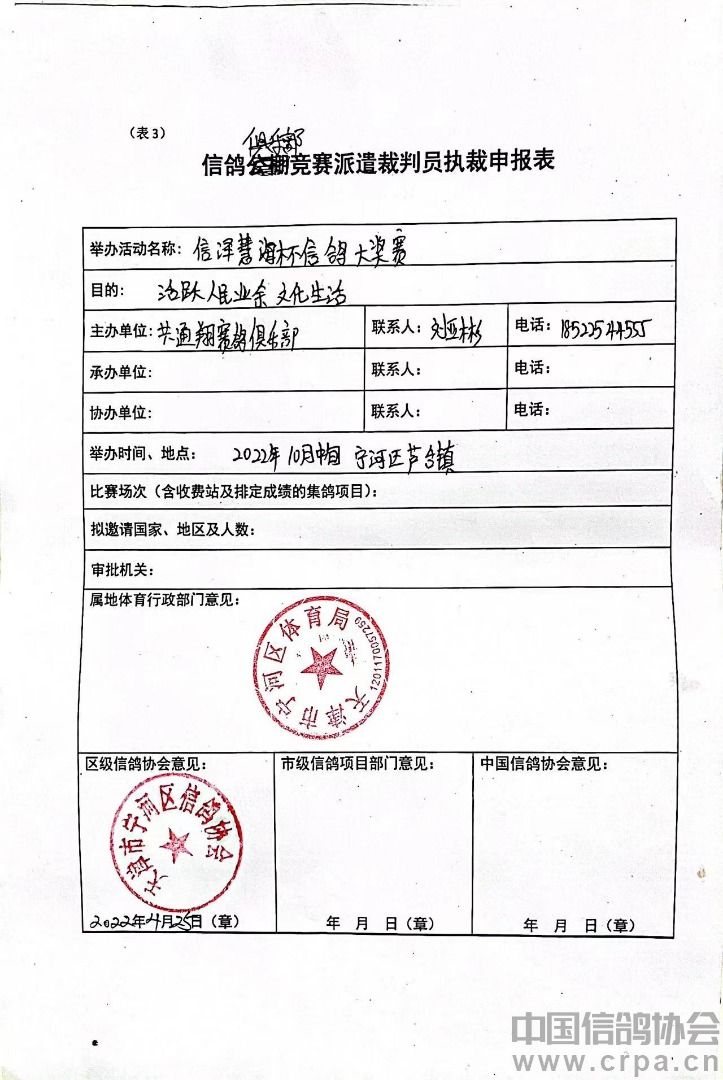 （表3）
俱乐部
信鸽公棚竞赛派遣裁判员执裁申报表
举办活动名称：信泽慧海杯信鸽大奖赛
目的：活跃人民业余文化生活
主办单位：共通翔赛鸽俱乐部 联系人：刘亚彬 电话：18522544555
承办单位： 联系人： 电话：
协办单位： 联系人： 电话：
举办时间、地点：2022年10月中旬 宁河区芦台镇
比赛场次（含收费站及排定成绩的集鸽项目）：
拟邀请国家、地区及人数：
审批机关：
属地体育行政部门意见：
天津市宁河区体育局
1201170057259
区级信鸽协会意见： 市级信鸽项目部门意见： 中国信鸽协会意见：
天津市宁河区信鸽协会
2022年4月25日（章） 年 月 日（章） 年 月 日（章）
中国信鸽协会
www.crpa.cn